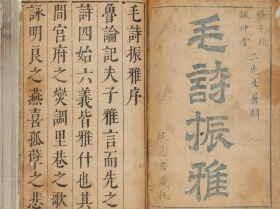 毛詩振雅
二先生輯
毛詩振雅序
魯論記夫子雅言而先之
詩四始六義皆雅什也其
間官府之燮調里巷之歌
詠明良之燕喜孤孽之悲